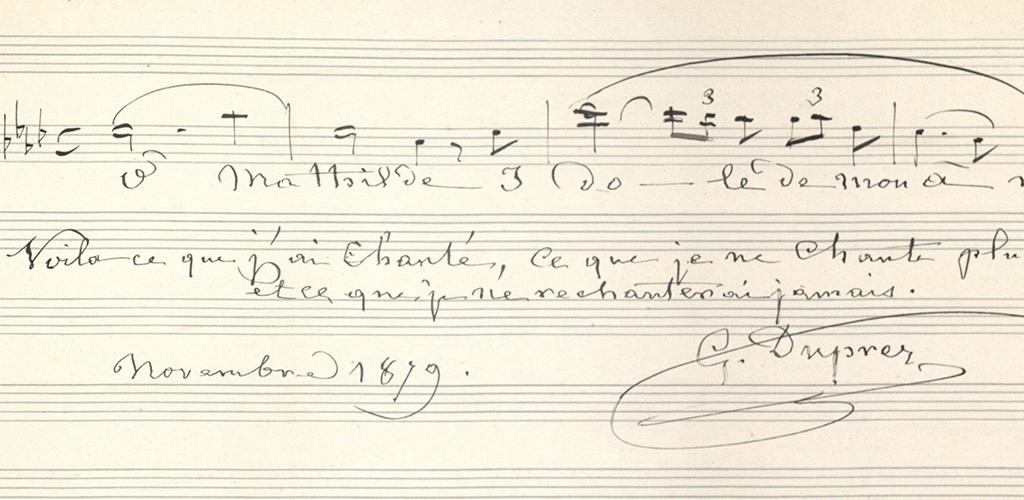 3 3
O Mathilde I do — le de mon a
Voila ce que j'ai Chanté, Ce que je ne Chante plu
et ce que je ne rechanterai jamais.
Novembre 1879. G. Duprez